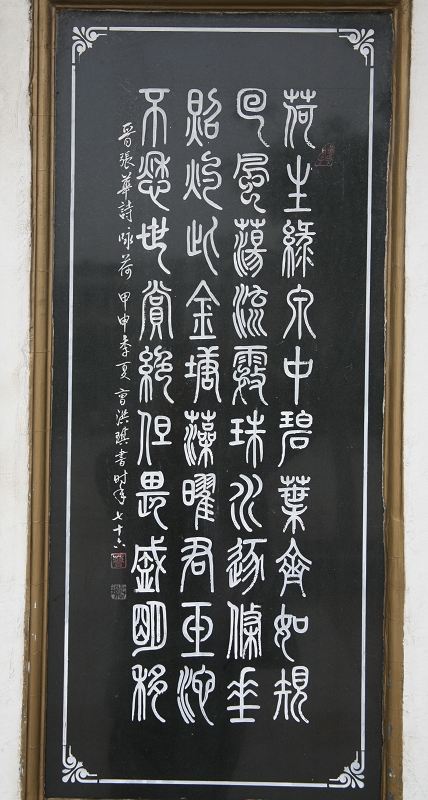 荷生綠泉中碧葉齊如規
回風蕩流霧珠水逐條垂
照灼此金塘藻曜君玉池
不愁世賞絕但畏盛明移
晋張華詩咏荷 甲申季夏 洪琪書时年七十六